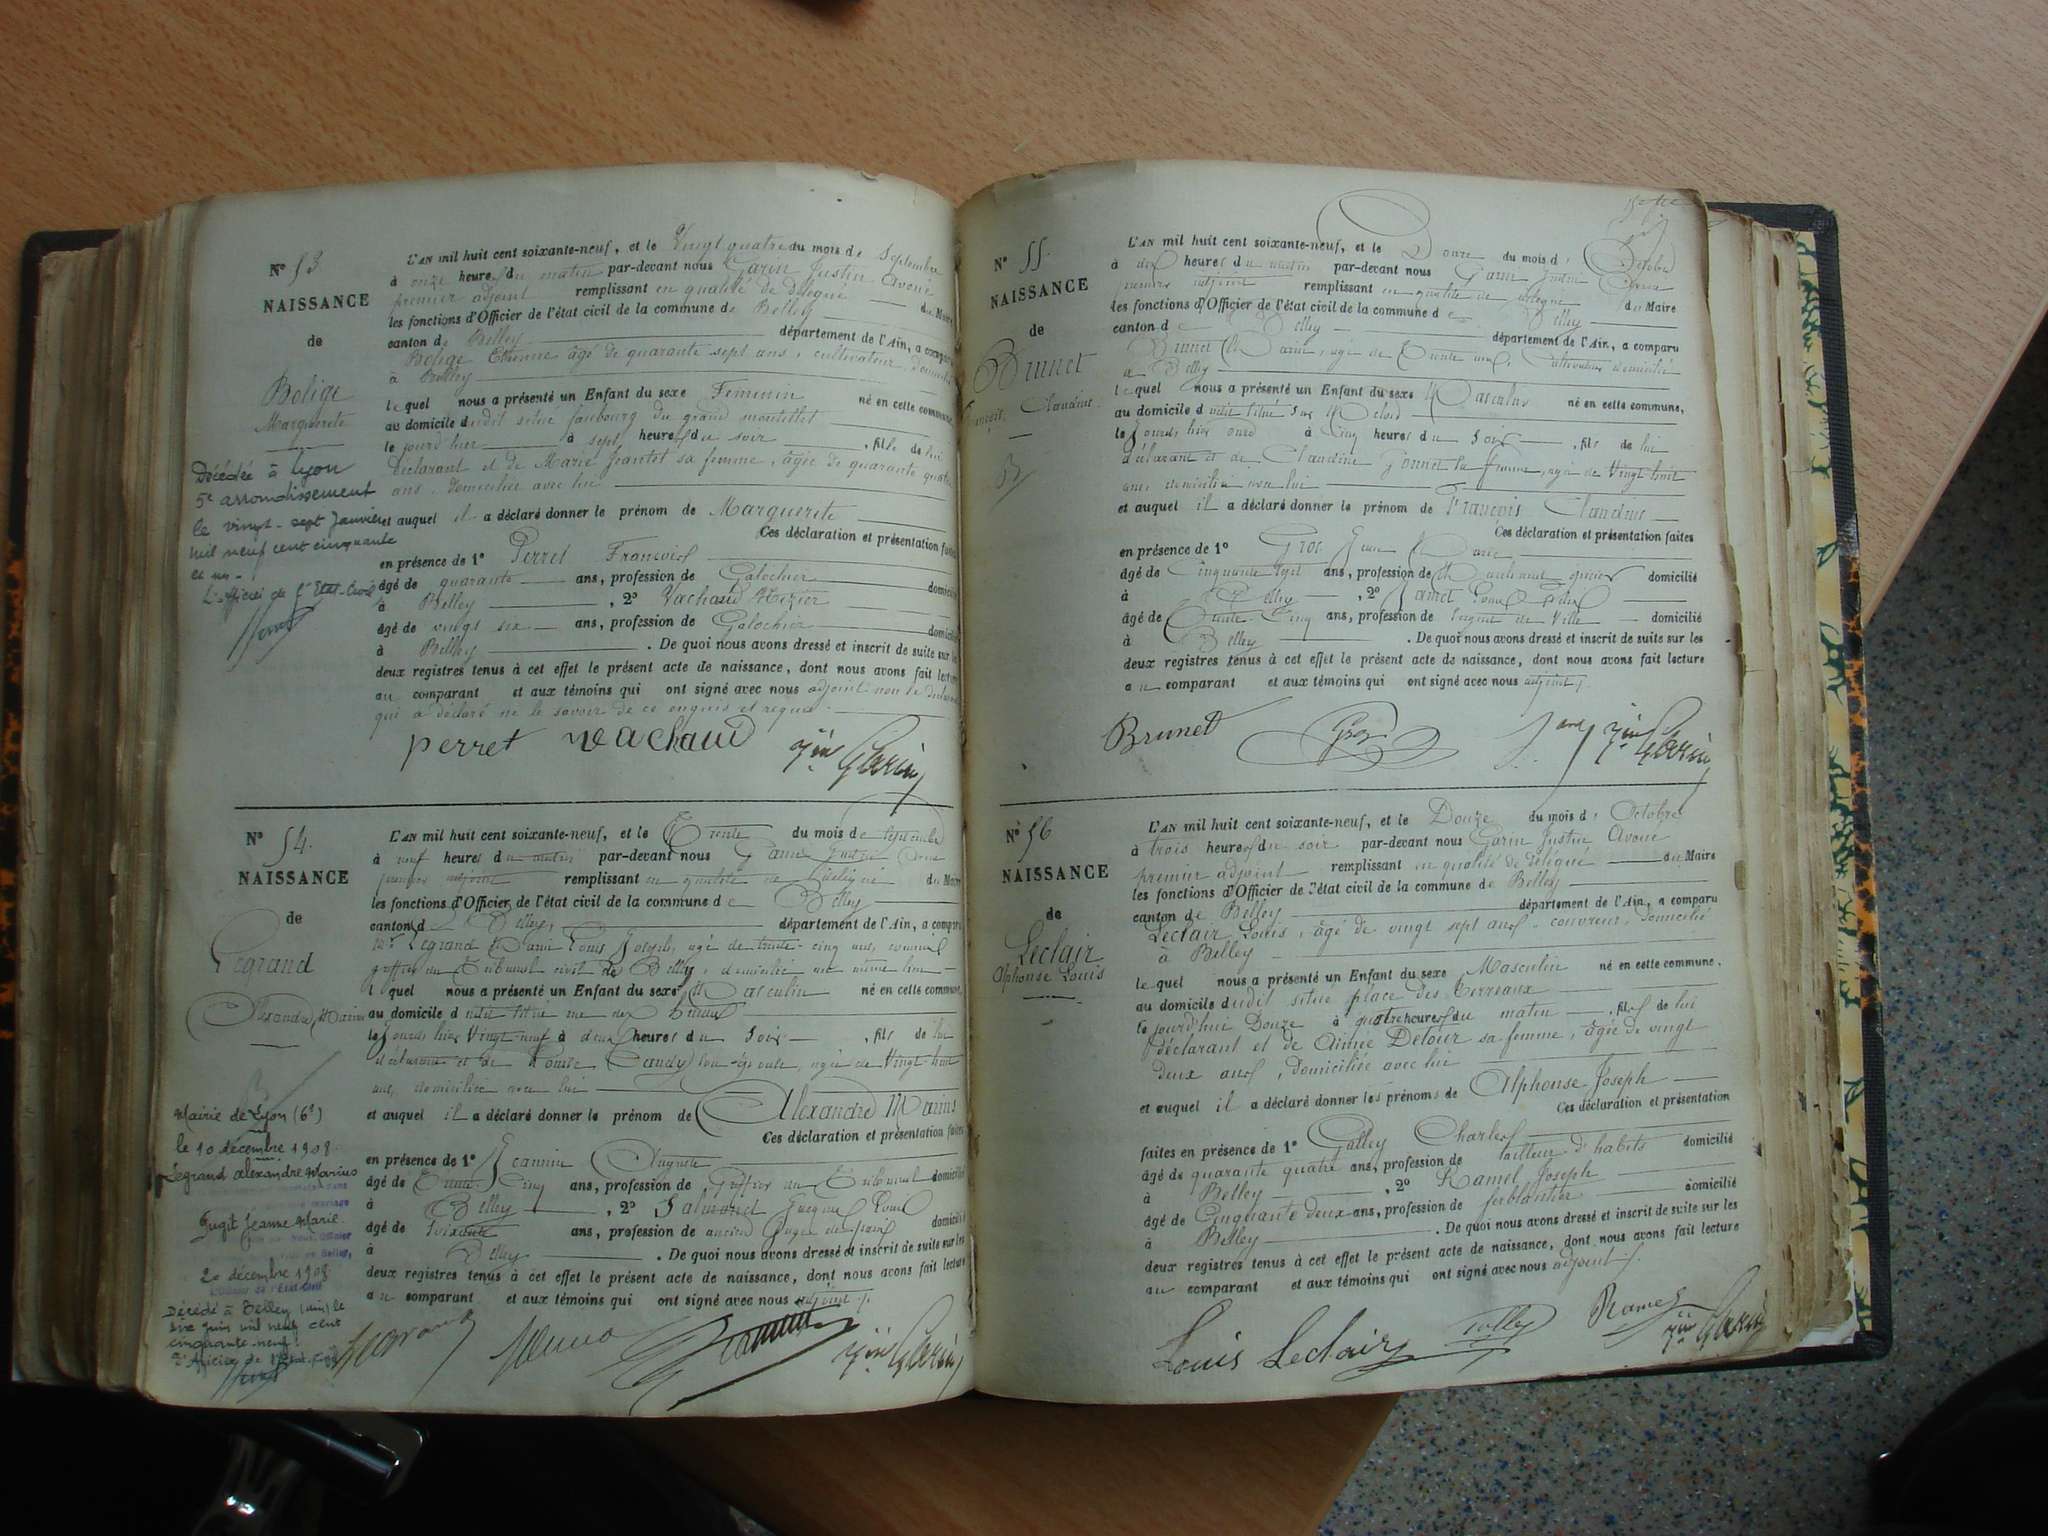 N° 53
NAISSANCE
de
Bolige
Marguerite
Décédée à Lyon
5e arrondissement
le vingt-sept Janvier
mil neuf cent cinquante
et un.
L'officier de l'Etat-Civil
L'AN mil huit cent soixante-neuf, et le Vingt quatre du mois de Septembre
à onze heures du matin par-devant nous Garin Justin Avoué
premier adjoint remplissant en qualité de délégué du Maire
les fonctions d'Officier de l'état civil de la commune de Belley
canton de Belley département de l'Ain, a comparu
Bolige Etienne âgé de quarante sept ans, cultivateur, domicilié
à Belley
lequel nous a présenté un Enfant du sexe Féminin né en cette commune,
au domicile dudit situé faubourg du grand
le jourd'hier à sept heures du soir, fille de lui
déclarant et de Marie Jeantet sa femme, âgée de quarante quatre
ans, domiciliée avec lui
et auquel il a déclaré donner le prénom de Marguerite
Ces déclaration et présentation faites
en présence de 1° Perret François
âgé de quarante ans, profession de Galochier domicilié
à Belley, 2° Vachaud
âgé de vingt six ans, profession de Galochier domicilié
à Belley. De quoi nous avons dressé et inscrit de suite sur les
deux registres tenus à cet effet le présent acte de naissance, dont nous avons fait lecture
au comparant et aux témoins qui ont signé avec nous adjoint non le déclarant
qui a déclaré ne le savoir de ce enquis et requis.
perret Vachaud Jin Garin
N° 54.
NAISSANCE
de
Legrand
Alexandre Marius
Mairie de Lyon (6e)
le 10 décembre 1908.
Legrand Alexandre Marius
Jeanne Marie.
20 décembre 1908
Décédé à Belley (Ain) le
six juin mil neuf cent
cinquante neuf.
L'Officier de l'Etat-Civil
L'AN mil huit cent soixante-neuf, et le Trente du mois de septembre
à neuf heures du matin par-devant nous Garin Justin Avoué
premier adjoint remplissant en qualité de délégué du Maire
les fonctions d'Officier de l'état civil de la commune de Belley
canton de Belley, département de l'Ain, a comparu
Mr Legrand Marie Louis Joseph, âgé de trente-cinq ans, commis
greffier au Tribunal civil de Belley, domicilié au même lieu
lequel nous a présenté un Enfant du sexe Masculin né en cette commune,
au domicile dudit situé rue
le Jourd'hier Vingt-neuf à deux heures du Soir, fils de lui
déclarant et de Louise son épouse, âgée de Vingt huit
ans, domiciliée avec lui
et auquel il a déclaré donner le prénom de Alexandre Marius
Ces déclaration et présentation faites
en présence de 1° Jeannin Auguste
âgé de Trente Cinq ans, profession de Greffier au Tribunal domicilié
à Belley, 2° Jacques Louis
âgé de soixante ans, profession de ancien Juge de paix domicilié
à Belley. De quoi nous avons dressé et inscrit de suite sur les
deux registres tenus à cet effet le présent acte de naissance, dont nous avons fait lecture
au comparant et aux témoins qui ont signé avec nous adjoint.
Legrand Jeannin Jin Garin
N° 55.
NAISSANCE
de
Brunet
François Claudius
L'AN mil huit cent soixante-neuf, et le Douze du mois d'Octobre
à dix heures du matin par-devant nous Garin Justin Avoué
premier adjoint remplissant en qualité de délégué du Maire
les fonctions d'Officier de l'état civil de la commune de Belley
canton de Belley département de l'Ain, a comparu
Brunet Marie, âgé de Trente ans, Cultivateur domicilié
à Belley
lequel nous a présenté un Enfant du sexe Masculin né en cette commune,
au domicile dudit situé
le Jourd'hier onze à Cinq heures du Soir, fils de lui
déclarant et de Claudine Gonnet sa femme, âgée de Vingt huit
ans, domiciliée avec lui
et auquel il a déclaré donner le prénom de François Claudius
Ces déclaration et présentation faites
en présence de 1° Gros Jean Marie
âgé de Cinquante Sept ans, profession de Marchand épicier domicilié
à Belley, 2° Janet Louis
âgé de Trente Cinq ans, profession de Sergent de Ville domicilié
à Belley. De quoi nous avons dressé et inscrit de suite sur les
deux registres tenus à cet effet le présent acte de naissance, dont nous avons fait lecture
au comparant et aux témoins qui ont signé avec nous adjoint.
Brunet Gros Jin Garin
N° 56
NAISSANCE
de
Leclair
Alphonse Louis
L'AN mil huit cent soixante-neuf, et le Douze du mois d'Octobre
à trois heures du soir par-devant nous Garin Justin Avoué
premier adjoint remplissant en qualité de délégué du Maire
les fonctions d'Officier de l'état civil de la commune de Belley
canton de Belley département de l'Ain, a comparu
Leclair Louis, âgé de vingt sept ans, couvreur, domicilié
à Belley
lequel nous a présenté un Enfant du sexe Masculin né en cette commune,
au domicile dudit situé place des Terreaux
le jourd'hui Douze à quatre heures du matin, fils de lui
déclarant et de Aimée Detour sa femme, âgée de vingt
deux ans, domiciliée avec lui
et auquel il a déclaré donner les prénoms de Alphonse Joseph
Ces déclaration et présentation
faites en présence de 1° Galley Charles
âgé de quarante quatre ans, profession de tailleur d'habits domicilié
à Belley, 2° Ramel Joseph
âgé de Cinquante deux ans, profession de ferblantier domicilié
à Belley. De quoi nous avons dressé et inscrit de suite sur les
deux registres tenus à cet effet le présent acte de naissance, dont nous avons fait lecture
au comparant et aux témoins qui ont signé avec nous adjoint.
Louis Leclair Galley Ramel Jin Garin